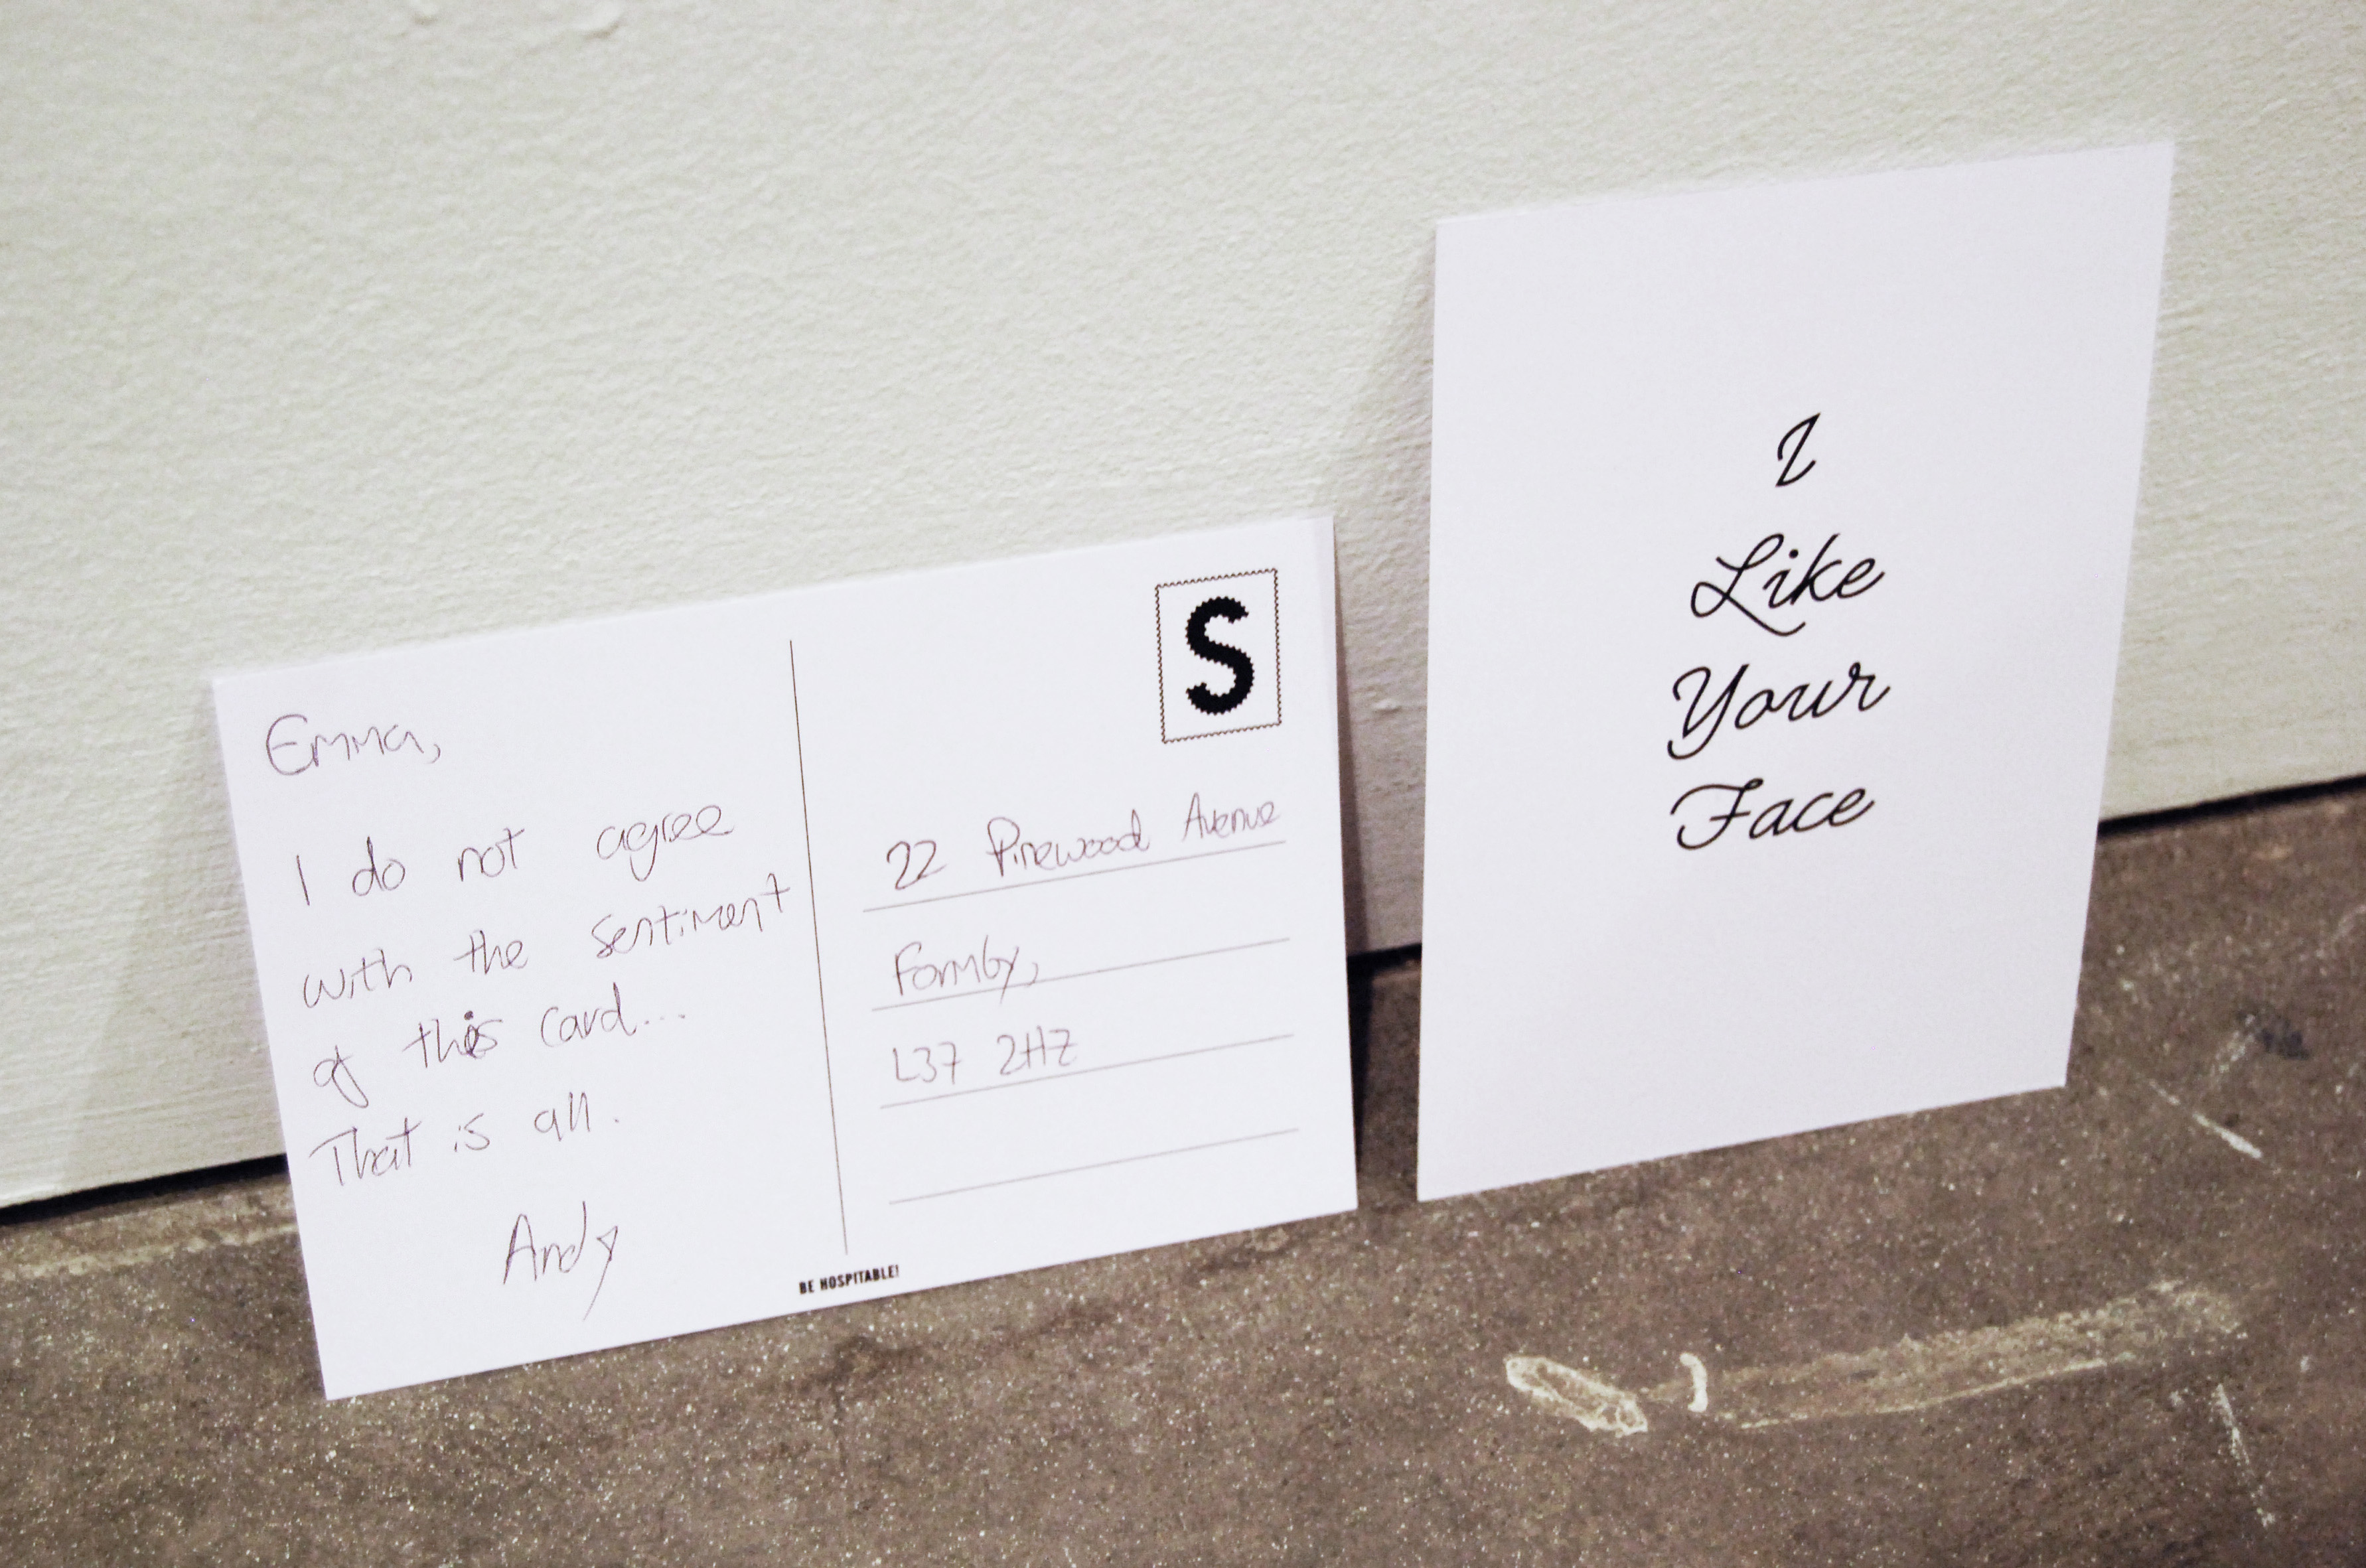 Emma,
I do not agree
with the sentiment
of this card...
That is all.
Andy
S
22 Pinewood Avenue
Formby,
L37 2HZ
BE HOSPITABLE!
I
Like
Your
Face